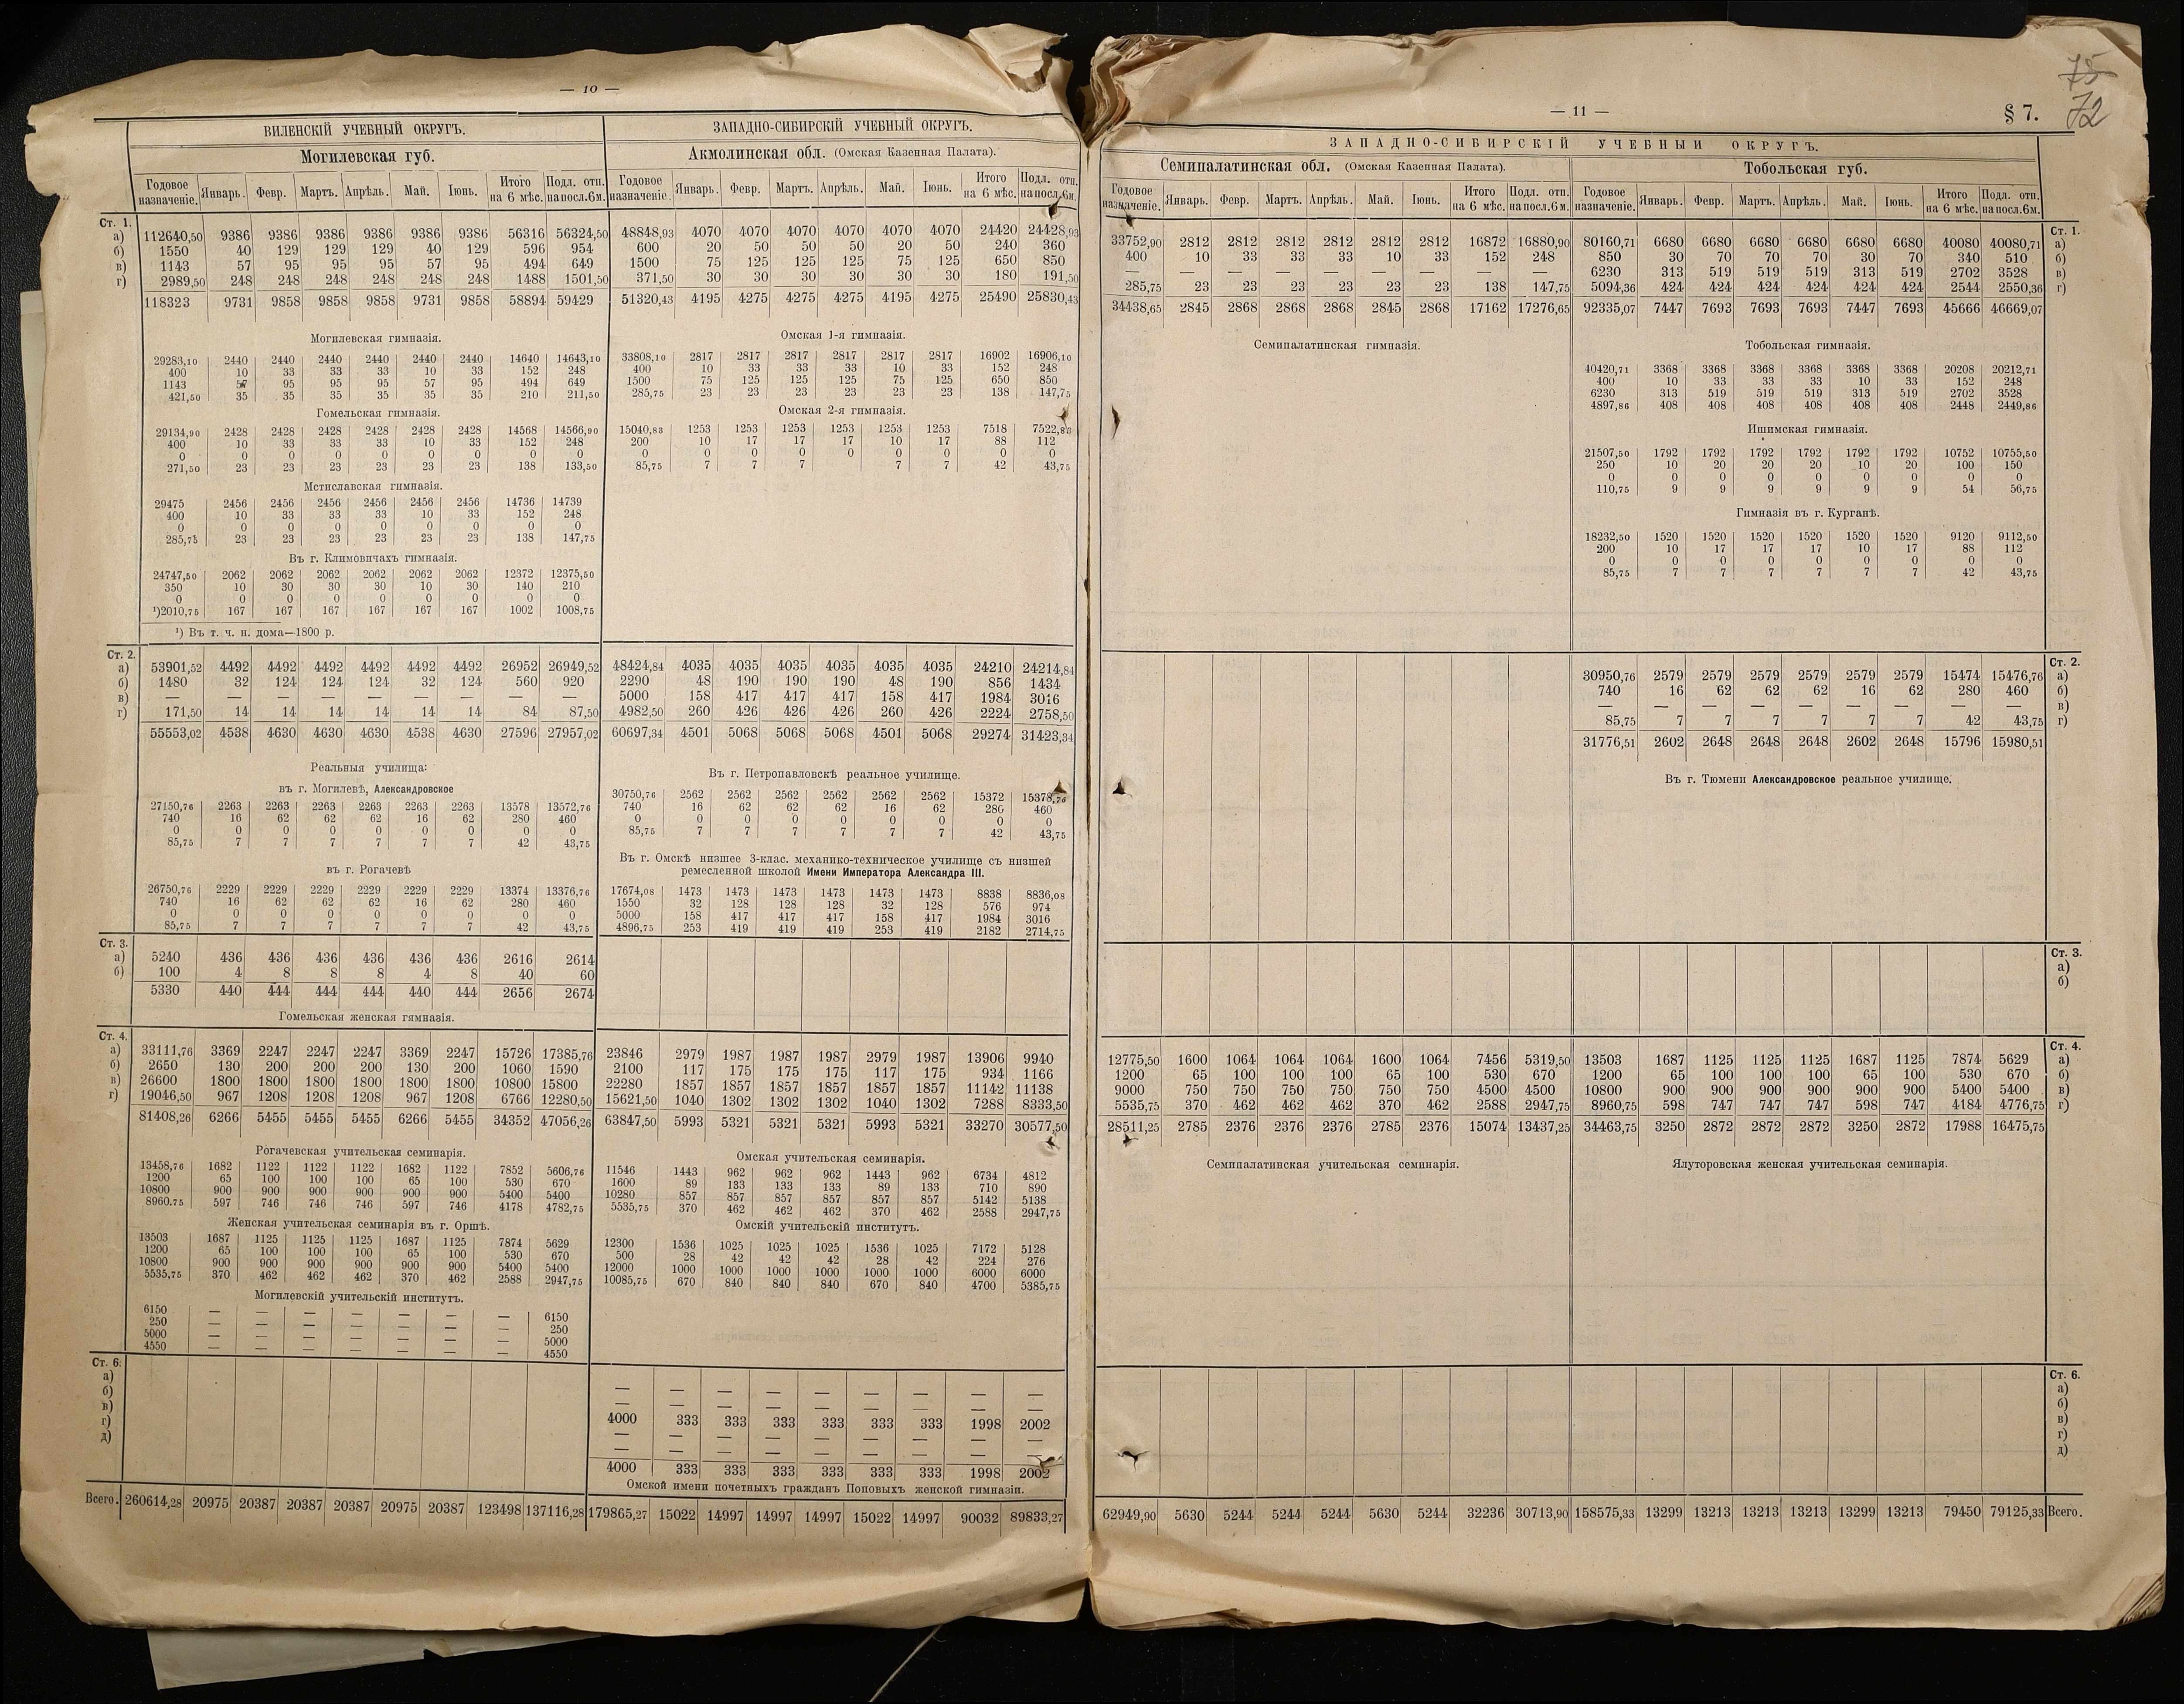 — 10 —
ВИЛЕНСКІЙ УЧЕБНЫЙ ОКРУГЪ. ЗАПАДНО-СИБИРСКІЙ УЧЕБНЫЙ ОКРУГЪ.
Могилевская губ. Акмолинская обл. (Омская Казенная Палата).
Годовое назначеніе. Январь. Февр. Мартъ. Апрѣль. Май. Іюнь. Итого на 6 мѣс. Подл. отп. на посл. 6 м. Годовое назначеніе. Январь. Февр. Мартъ. Апрѣль. Май. Іюнь. Итого на 6 мѣс. Подл. отп. на посл. 6 м.
Ст. 1.
а) 112640,50 9386 9386 9386 9386 9386 9386 56316 56324,50 48848,93 4070 4070 4070 4070 4070 4070 24420 24428,93
б) 1550 40 129 129 129 40 129 596 954 600 20 50 50 50 20 50 240 360
в) 1143 57 95 95 95 57 95 494 649 1500 75 125 125 125 75 125 650 850
г) 2989,50 248 248 248 248 248 248 1488 1501,50 371,50 30 30 30 30 30 30 180 191,50
118323 9731 9858 9858 9858 9731 9858 58894 59429 51320,43 4195 4275 4275 4275 4195 4275 25490 25830,43
Могилевская гимназія. Омская 1-я гимназія.
29283,10 2440 2440 2440 2440 2440 2440 14640 14643,10 33808,10 2817 2817 2817 2817 2817 2817 16902 16906,10
400 10 33 33 33 10 33 152 248 400 10 33 33 33 10 33 152 248
1143 57 95 95 95 57 95 494 649 1500 75 125 125 125 75 125 650 850
421,50 35 35 35 35 35 35 210 211,50 285,75 23 23 23 23 23 23 138 147,75
Гомельская гимназія. Омская 2-я гимназія.
29134,90 2428 2428 2428 2428 2428 2428 14568 14566,90 15040,83 1253 1253 1253 1253 1253 1253 7518 7522,83
400 10 33 33 33 10 33 152 248 200 10 17 17 17 10 17 88 112
0 0 0 0 0 0 0 0 0 0 0 0 0 0 0 0 0 0
271,50 23 23 23 23 23 23 138 133,50 85,75 7 7 7 7 7 42 43,75
Мстиславская гимназія.
29475 2456 2456 2456 2456 2456 2456 14736 14739
400 10 33 33 33 10 33 152 248
0 0 0 0 0 0 0 0 0
285,75 23 23 23 23 23 23 138 147,75
Въ г. Климовичахъ гимназія.
24747,50 2062 2062 2062 2062 2062 2062 12372 12375,50
350 10 30 30 30 10 30 140 210
0 0 0 0 0 0 0 0 0
¹)2010,75 167 167 167 167 167 167 1002 1008,75
¹) Въ т. ч. н. дома—1800 р.
Ст. 2.
а) 53901,52 4492 4492 4492 4492 4492 4492 26952 26949,52 48424,84 4035 4035 4035 4035 4035 4035 24210 24214,84
б) 1480 32 124 124 124 32 124 560 920 2290 48 190 190 190 48 190 856 1434
в) — — — — — — — — — 5000 158 417 417 417 158 417 1984 3016
г) 171,50 14 14 14 14 14 14 84 87,50 4982,50 260 426 426 426 260 426 2224 2758,50
55553,02 4538 4630 4630 4630 4538 4630 27596 27957,02 60697,34 4501 5068 5068 5068 4501 5068 29274 31423,34
Реальныя училища:
въ г. Могилевѣ, Александровское Въ г. Петропавловскѣ реальное училище.
27150,76 2263 2263 2263 2263 2263 2263 13578 13572,76 30750,76 2562 2562 2562 2562 2562 2562 15372 15378,76
740 16 62 62 62 16 62 280 460 740 16 62 62 62 16 62 280 460
0 0 0 0 0 0 0 0 0 0 0 0 0 0 0 0 0 0
85,75 7 7 7 7 7 7 42 43,75 85,75 7 7 7 7 7 7 42 43,75
въ г. Рогачевѣ Въ г. Омскѣ низшее 3-клас. механико-техническое училище съ низшей
ремесленной школой Имени Императора Александра III.
26750,76 2229 2229 2229 2229 2229 2229 13374 13376,76 17674,08 1473 1473 1473 1473 1473 1473 8838 8836,08
740 16 62 62 62 16 62 280 460 1550 32 128 128 128 32 128 576 974
0 0 0 0 0 0 0 0 0 5000 158 417 417 417 158 417 1984 3016
85,75 7 7 7 7 7 7 42 43,75 4896,75 253 419 419 419 253 419 2182 2714,75
Ст. 3.
а) 5240 436 436 436 436 436 436 2616 2614
б) 100 4 8 8 8 4 8 40 60
5330 440 444 444 444 440 444 2656 2674
Гомельская женская гимназія.
Ст. 4.
а) 33111,76 3369 2247 2247 2247 3369 2247 15726 17385,76 23846 2979 1987 1987 1987 2979 1987 13906 9940
б) 2650 130 200 200 200 130 200 1060 1590 2100 117 175 175 175 117 175 934 1166
в) 26600 1800 1800 1800 1800 1800 1800 10800 15800 22280 1857 1857 1857 1857 1857 1857 11142 11138
г) 19046,50 967 1208 1208 1208 967 1208 6766 12280,50 15621,50 1040 1302 1302 1302 1040 1302 7288 8333,50
81408,26 6266 5455 5455 5455 6266 5455 34352 47056,26 63847,50 5993 5321 5321 5321 5993 5321 33270 30577,50
Рогачевская учительская семинарія. Омская учительская семинарія.
13458,76 1682 1122 1122 1122 1682 1122 7852 5606,76 11546 1443 962 962 962 1443 962 6734 4812
1200 65 100 100 100 65 100 530 670 1600 89 133 133 133 89 133 710 890
10800 900 900 900 900 900 900 5400 5400 10280 857 857 857 857 857 857 5142 5138
8960.75 597 746 746 746 597 746 4178 4782,75 5535,75 370 462 462 462 370 462 2588 2947,75
Женская учительская семинарія въ г. Оршѣ. Омскій учительскій институтъ.
13503 1687 1125 1125 1125 1687 1125 7874 5629 12300 1536 1025 1025 1025 1536 1025 7172 5128
1200 65 100 100 100 65 100 530 670 500 28 42 42 42 28 42 224 276
10800 900 900 900 900 900 900 5400 5400 12000 1000 1000 1000 1000 1000 1000 6000 6000
5535,75 370 462 462 462 370 462 2588 2947,75 10085,75 670 840 840 840 670 840 4700 5385,75
Могилевскій учительскій институтъ.
6150 — — — — — — — 6150
250 — — — — — — — 250
5000 — — — — — — — 5000
4550 — — — — — — — 4550
Ст. 6.
а) — — — — — — — — —
б) — — — — — — — — —
в) 4000 333 333 333 333 333 333 1998 2002
г) — — — — — — — — —
д) — — — — — — — — —
4000 333 333 333 333 333 333 1998 2002
Омской имени почетныхъ гражданъ Поповыхъ женской гимназіи.
Всего. 260614,28 20975 20387 20387 20387 20975 20387 123498 137116,28 179865,27 15022 14997 14997 14997 15022 14997 90032 89833,27
— 11 — § 7.
75
72
ЗАПАДНО-СИБИРСКІЙ УЧЕБНЫЙ ОКРУГЪ.
Семипалатинская обл. (Омская Казенная Палата). Тобольская губ.
Годовое назначеніе. Январь. Февр. Мартъ. Апрѣль. Май. Іюнь. Итого на 6 мѣс. Подл. отп. на посл. 6 м. Годовое назначеніе. Январь. Февр. Мартъ. Апрѣль. Май. Іюнь. Итого на 6 мѣс. Подл. отп. на посл. 6 м.
Ст. 1.
33752,90 2812 2812 2812 2812 2812 2812 16872 16880,90 80160,71 6680 6680 6680 6680 6680 6680 40080 40080,71 а)
400 10 33 33 33 10 33 152 248 850 30 70 70 70 30 70 340 510 б)
— — — — — — — — — 6230 313 519 519 519 313 519 2702 3528 в)
285,75 23 23 23 23 23 23 138 147,75 5094,36 424 424 424 424 424 424 2544 2550,36 г)
34438,65 2845 2868 2868 2868 2845 2868 17162 17276,65 92335,07 7447 7693 7693 7693 7447 7693 45666 46669,07
Семипалатинская гимназія. Тобольская гимназія.
40420,71 3368 3368 3368 3368 3368 3368 20208 20212,71
400 10 33 33 33 10 33 152 248
6230 313 519 519 519 313 519 2702 3528
4897,86 408 408 408 408 408 408 2448 2449,86
Ишимская гимназія.
21507,50 1792 1792 1792 1792 1792 1792 10752 10755,50
250 10 20 20 20 10 20 100 150
0 0 0 0 0 0 0 0 0
110,75 9 9 9 9 9 9 54 56,75
Гимназія въ г. Курганѣ.
18232,50 1520 1520 1520 1520 1520 1520 9120 9112,50
200 10 17 17 17 10 17 88 112
0 0 0 0 0 0 0 0 0
85,75 7 7 7 7 7 7 42 43,75
Ст. 2.
30950,76 2579 2579 2579 2579 2579 2579 15474 15476,76 а)
740 16 62 62 62 16 62 280 460 б)
— — — — — — — — — в)
85,75 7 7 7 7 7 7 42 43,75 г)
31776,51 2602 2648 2648 2648 2602 2648 15796 15980,51
Въ г. Тюмени Александровское реальное училище.
Ст. 3.
а)
б)
Ст. 4.
12775,50 1600 1064 1064 1064 1600 1064 7456 5319,50 13503 1687 1125 1125 1125 1687 1125 7874 5629 а)
1200 65 100 100 100 65 100 530 670 1200 65 100 100 100 65 100 530 670 б)
9000 750 750 750 750 750 750 4500 4500 10800 900 900 900 900 900 900 5400 5400 в)
5535,75 370 462 462 462 370 462 2588 2947,75 8960,75 598 747 747 747 598 747 4184 4776,75 г)
28511,25 2785 2376 2376 2376 2785 2376 15074 13437,25 34463,75 3250 2872 2872 2872 3250 2872 17988 16475,75
Семипалатинская учительская семинарія. Ялуторовская женская учительская семинарія.
Ст. 6.
а)
б)
в)
г)
д)
62949,90 5630 5244 5244 5244 5630 5244 32236 30713,90 158575,33 13299 13213 13213 13213 13299 13213 79450 79125,33 Всего.